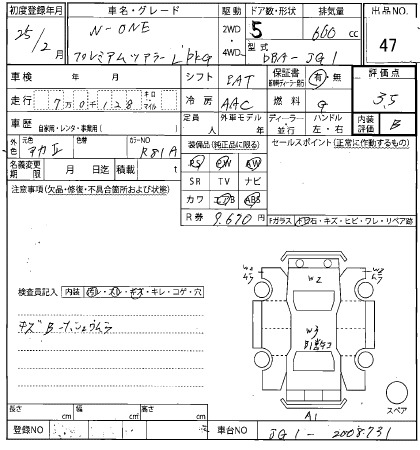 初度登録年月 車名・グレード 駆動 ドア数・形状 排気量 出品NO.
25年 2月 N-ONE 2WD 5 660 cc 47
プレミアムツアラー L'PKG 4WD 型式 DBA-JG1
車検 年 月 シフト FAT 保証書 有・無 評価点
走行 70,128 キロ・マイル 冷房 AAC 燃料 G 3.5
車歴 自家用・レンタ・事業用( ) 定員 人 外車モデル 年 ディーラー・並行 ハンドル 左・右 内装評価 B
外色 元色 アカII 色替 カラーNO R81A 装備品(純正品に限る) セールスポイント(正常に作動するもの)
名義変更期限 月 日迄 積載 t PS PW AW
注意事項(欠品・修復・不具合箇所および状態) SR TV ナビ
カワ エアB ABS
R券 9,670 円
Fガラス 飛石・キズ・ヒビ・ワレ・リペア跡
検査員記入 内装 汚レ・スレ・キズ・キレ・コゲ・穴
W2
W3
A1
スペア
長さ cm 幅 cm 高さ cm
登録NO 車台NO JG1-2008731